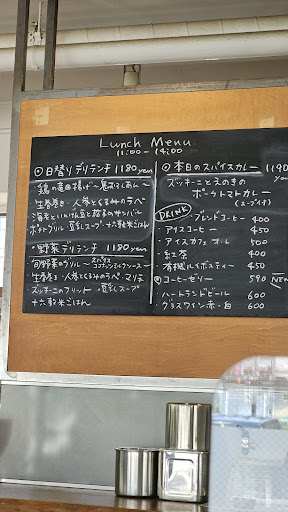 Lunch Menu
11:00 - 14:00
日替りデリランチ 1180yen
鶏の竜田揚げ〜
生春巻き・人参とくるみのラペ
海老といんげん豆と
ポットグリル・豆乳スープ 十六穀米ごはん
野菜デリランチ 1180yen
旬野菜のグリル〜スパイスココナッツミルクソース〜
生春巻き・人参とくるみのラペ・マリネ
ズッキーニのフリット・豆乳スープ
十六穀米ごはん
本日のスパイスカレー 1190yen
ズッキーニとえのきの
ポークトマトカレー
(スープ付)
DRINK
・ブレンドコーヒー 400
・アイスコーヒー 450
・アイスカフェオーレ 500
・紅茶 400
・有機ルイボスティー 450
コーヒーゼリー 590 NEW
・ハートランドビール 600
・グラスワイン 赤・白 600